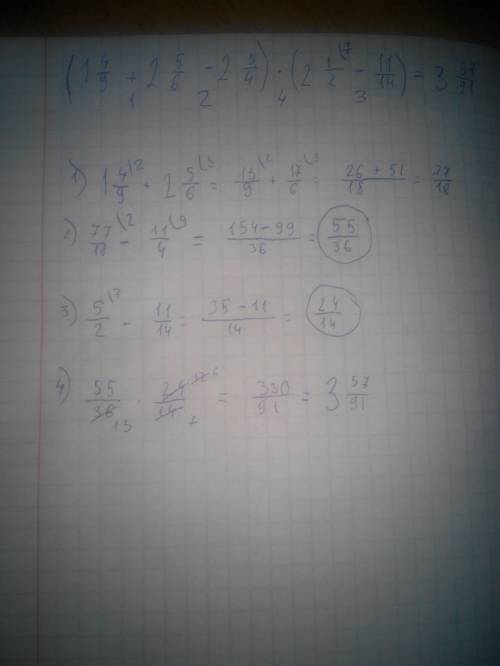 (1 4/9 + 2 5/6 - 2 3/4) · (2 1/2 \7 - 11/14) = 3 57/91
1 2 4 3
1) 1 4/9 \2 + 2 5/6 \3 = 13/9 \2 + 17/6 \3 = 26 + 51/18 = 77/18
2) 77/18 \2 - 11/4 \9 = 154-99/36 = 55/36
3) 5/2 \7 - 11/14 = 35-11/14 = 24/14
4) 55/36 13 · 24/14 12 6 7 = 330/91 = 3 57/91